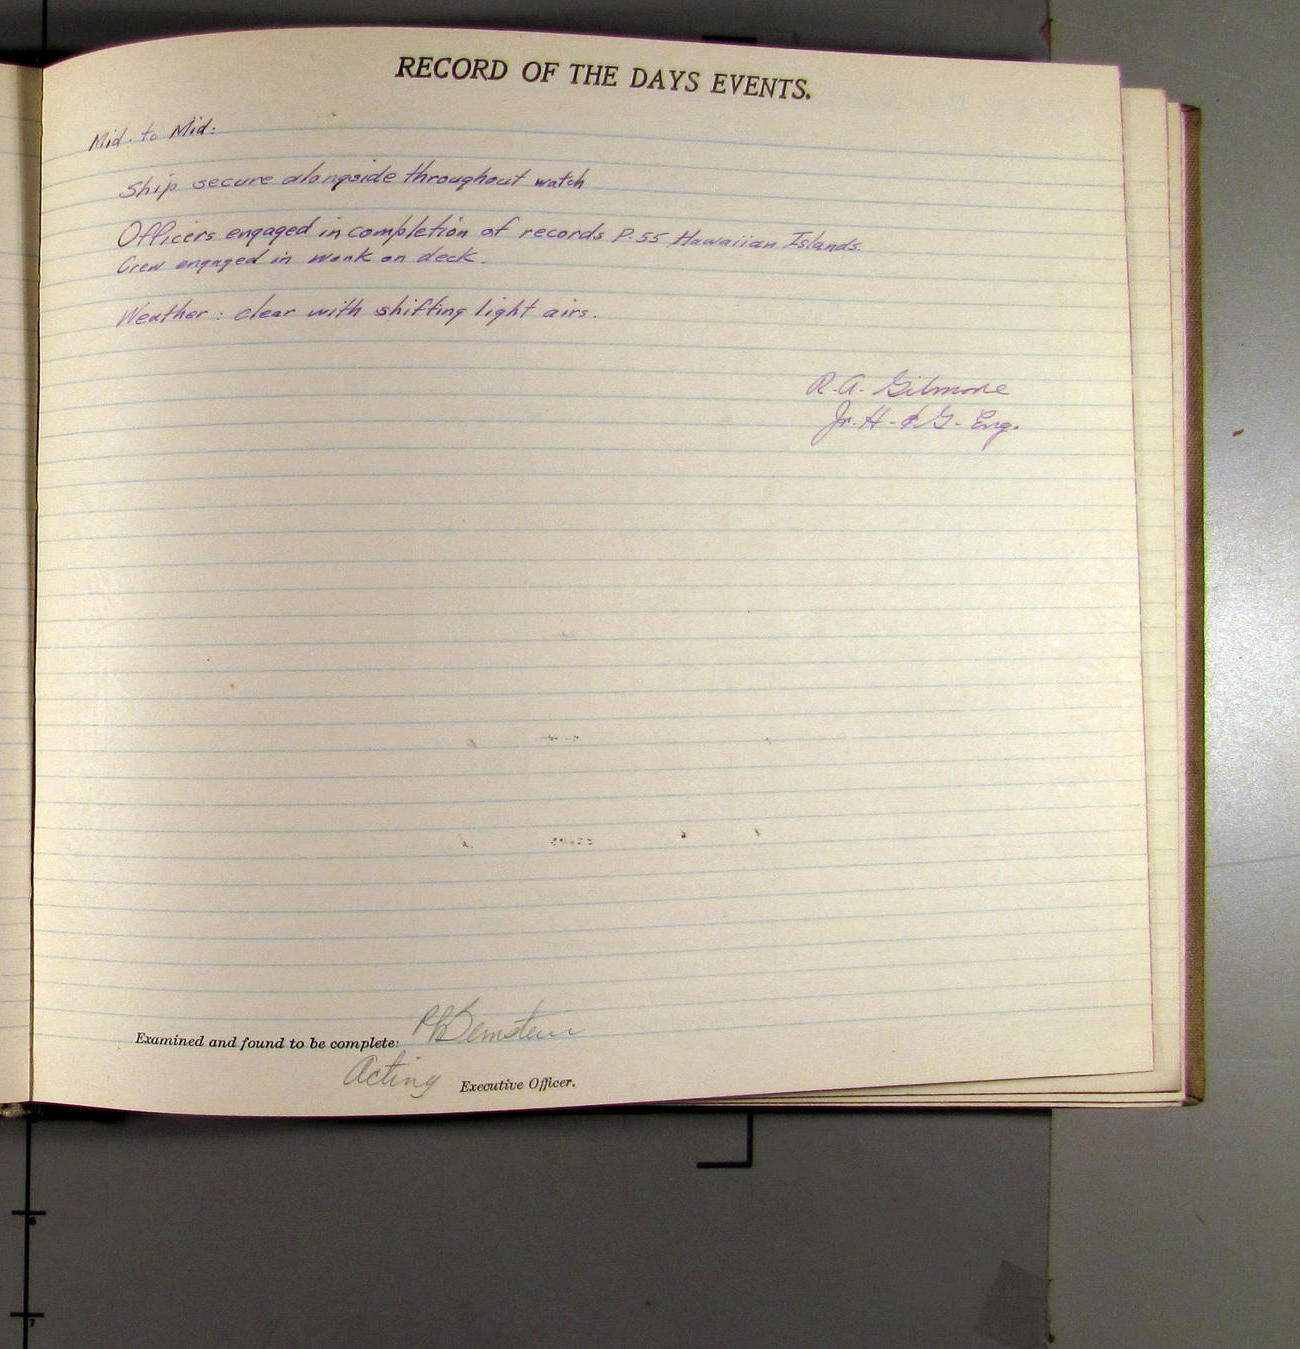 RECORD OF THE DAYS EVENTS.
Mid. to Mid:
Ship secure alongside throughout watch
Officers engaged in completion of records P-55 Hawaiian Islands.
Crew engaged in work on deck.
Weather: clear with shifting light airs.
R.A. Gilmore
Jr. H. & G. Eng.
Examined and found to be complete: Bernstein
Acting Executive Officer.
6
7